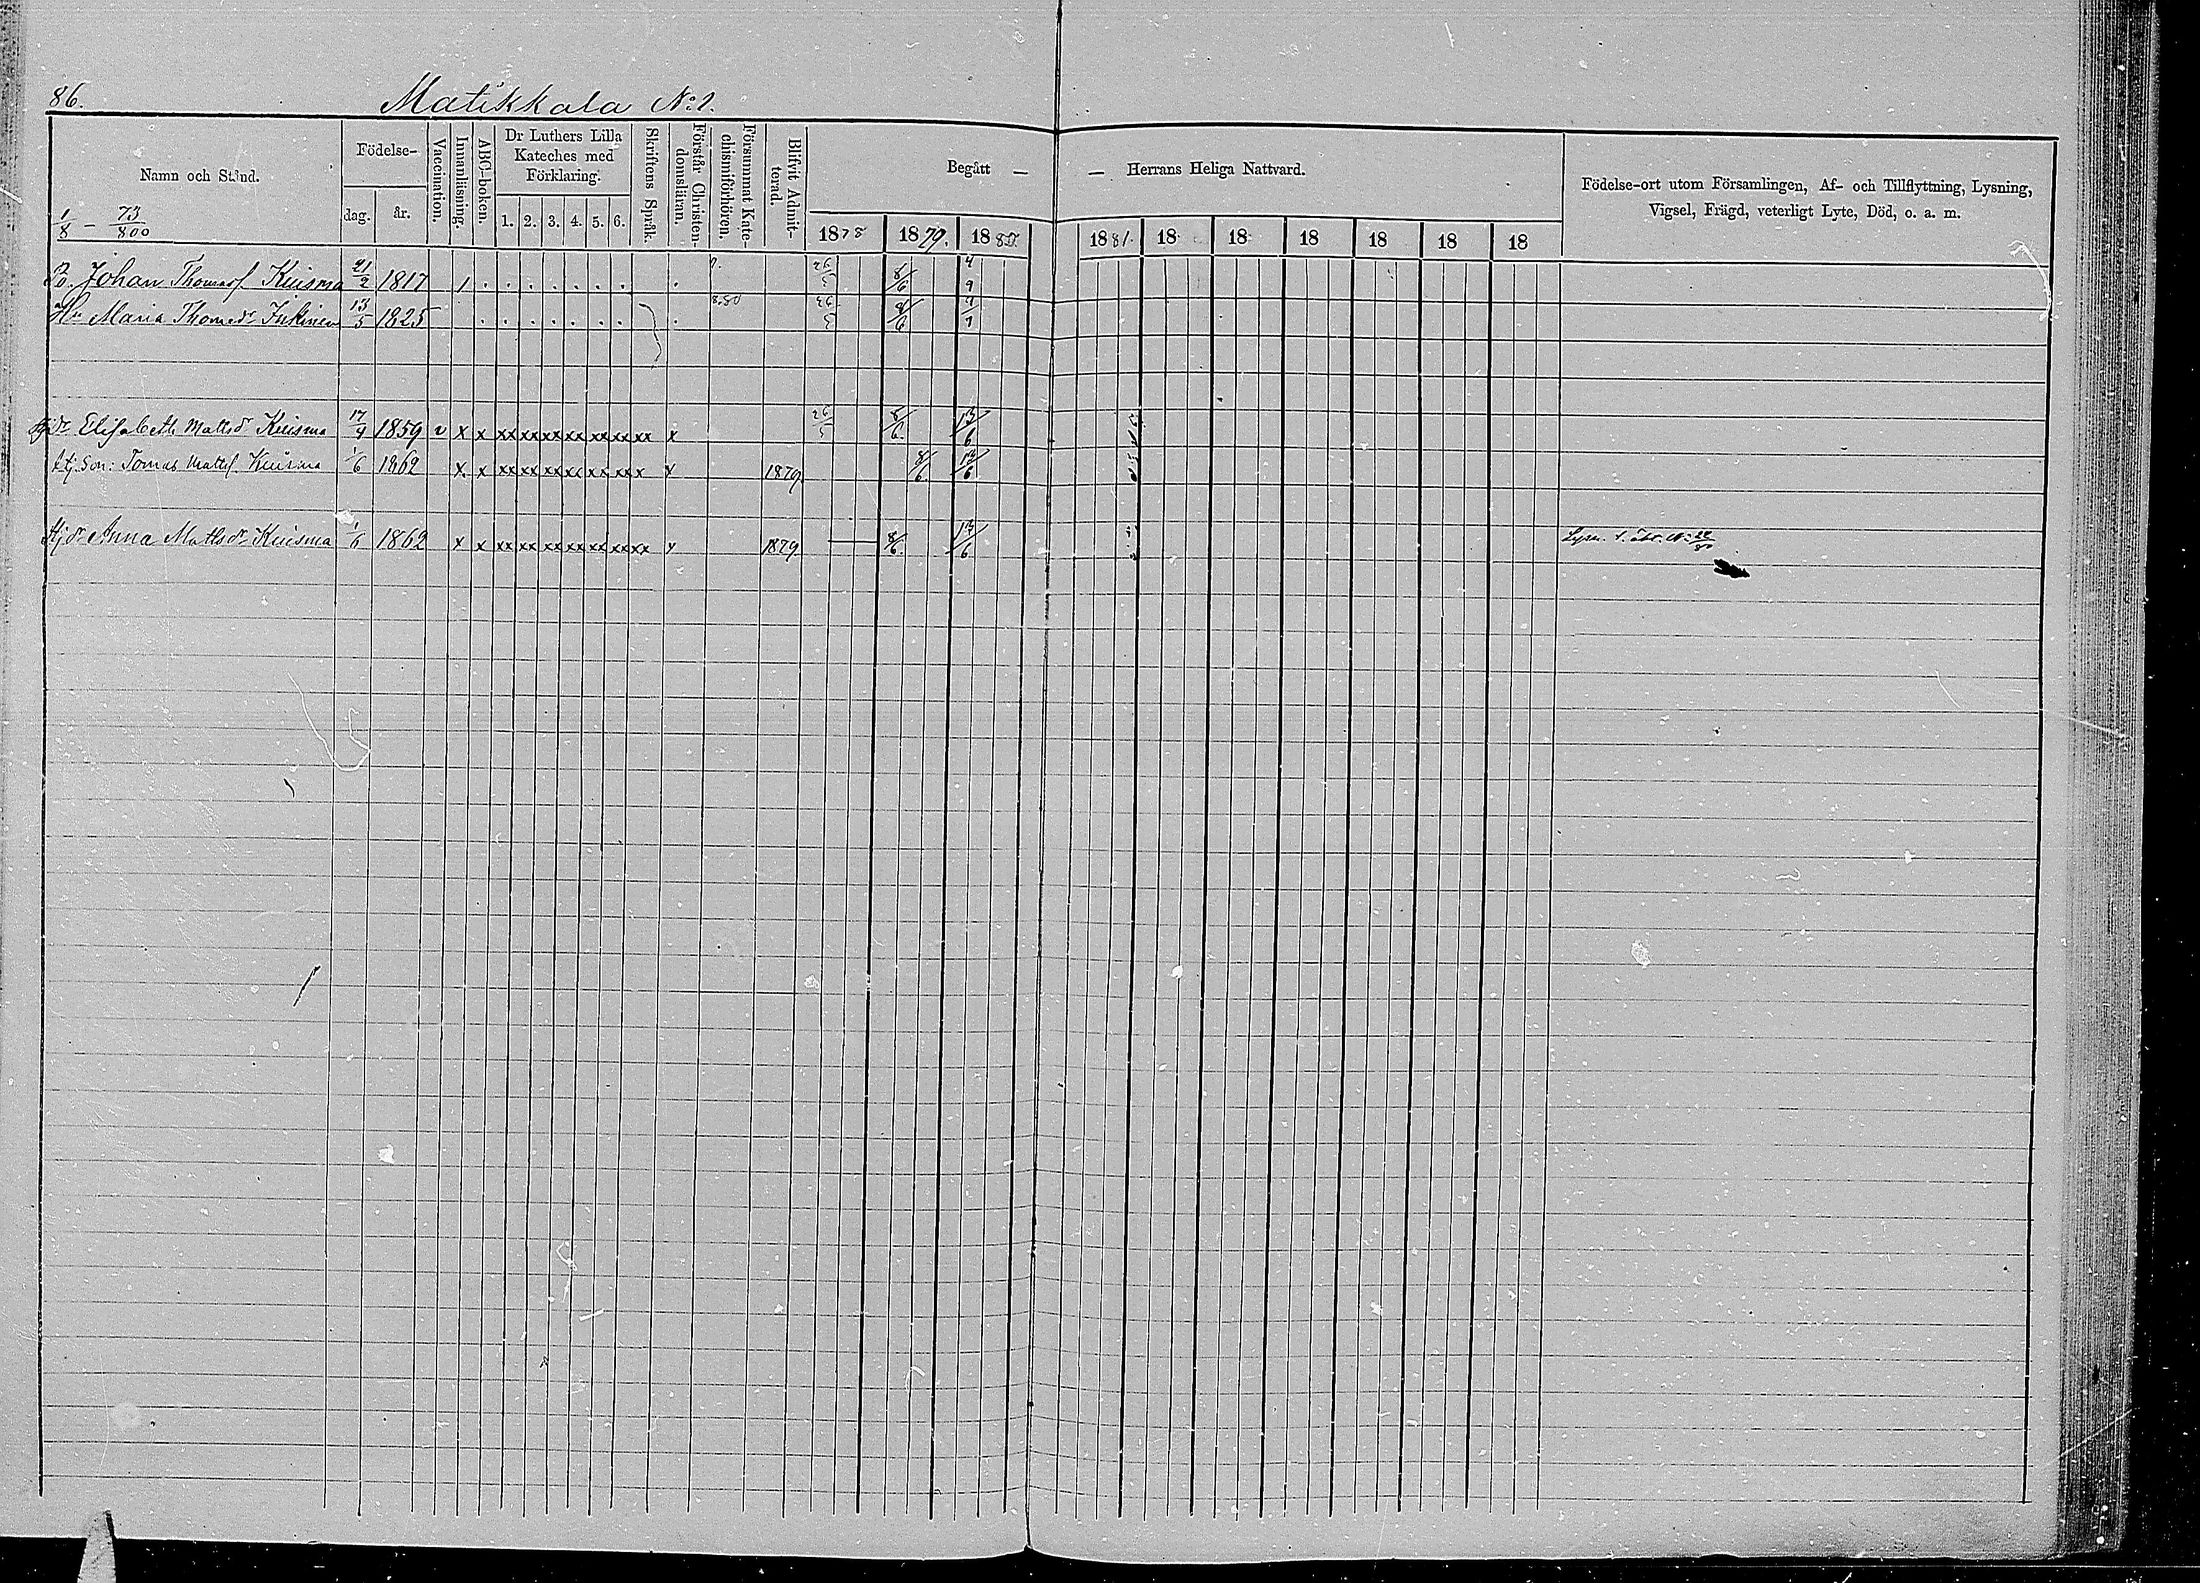 86. Matikkala No 1.
Namn och Stånd. Födelse- dag. år. Vaccination. Innanläsning. ABC-boken. Dr Luthers Lilla Kateches med Förklaring. 1. 2. 3. 4. 5. 6. Skriftens Språk. Förstår Christendomsläran. Försummat Katechismiförhören. Blifvit Admitterad. Begått — — Herrans Heliga Nattvard. 1878 1879. 1880. 1881. 18 18 18 18 18 18 Födelse-ort utom Församlingen, Af- och Tillflyttning, Lysning, Vigsel, Frägd, veterligt Lyte, Död, o. a. m.
1/8 — 73/800
Bo. Johan Thomasf. Kuisma 21/2 1817 26/5 8/6 4/9
Hu Maria Thomasdr Inkinen 13/5 1825 8.80 26/5 8/6
dr Elisabeth Mattsdr Kuisma 17/9 1859 v x x xx xx xx xx xx xx xx x 26/5 8/6. 13/6
Son: Tomas Mattsf. Kuisma 1/6 1862 x x xx xx xx xx xx xx x x 1879. 8/6. 13/6.
dr Anna Mattsdr Kuisma 1/6 1862 x x xx xx xx xx xx xx xx x 1879 8/6. 13/6.